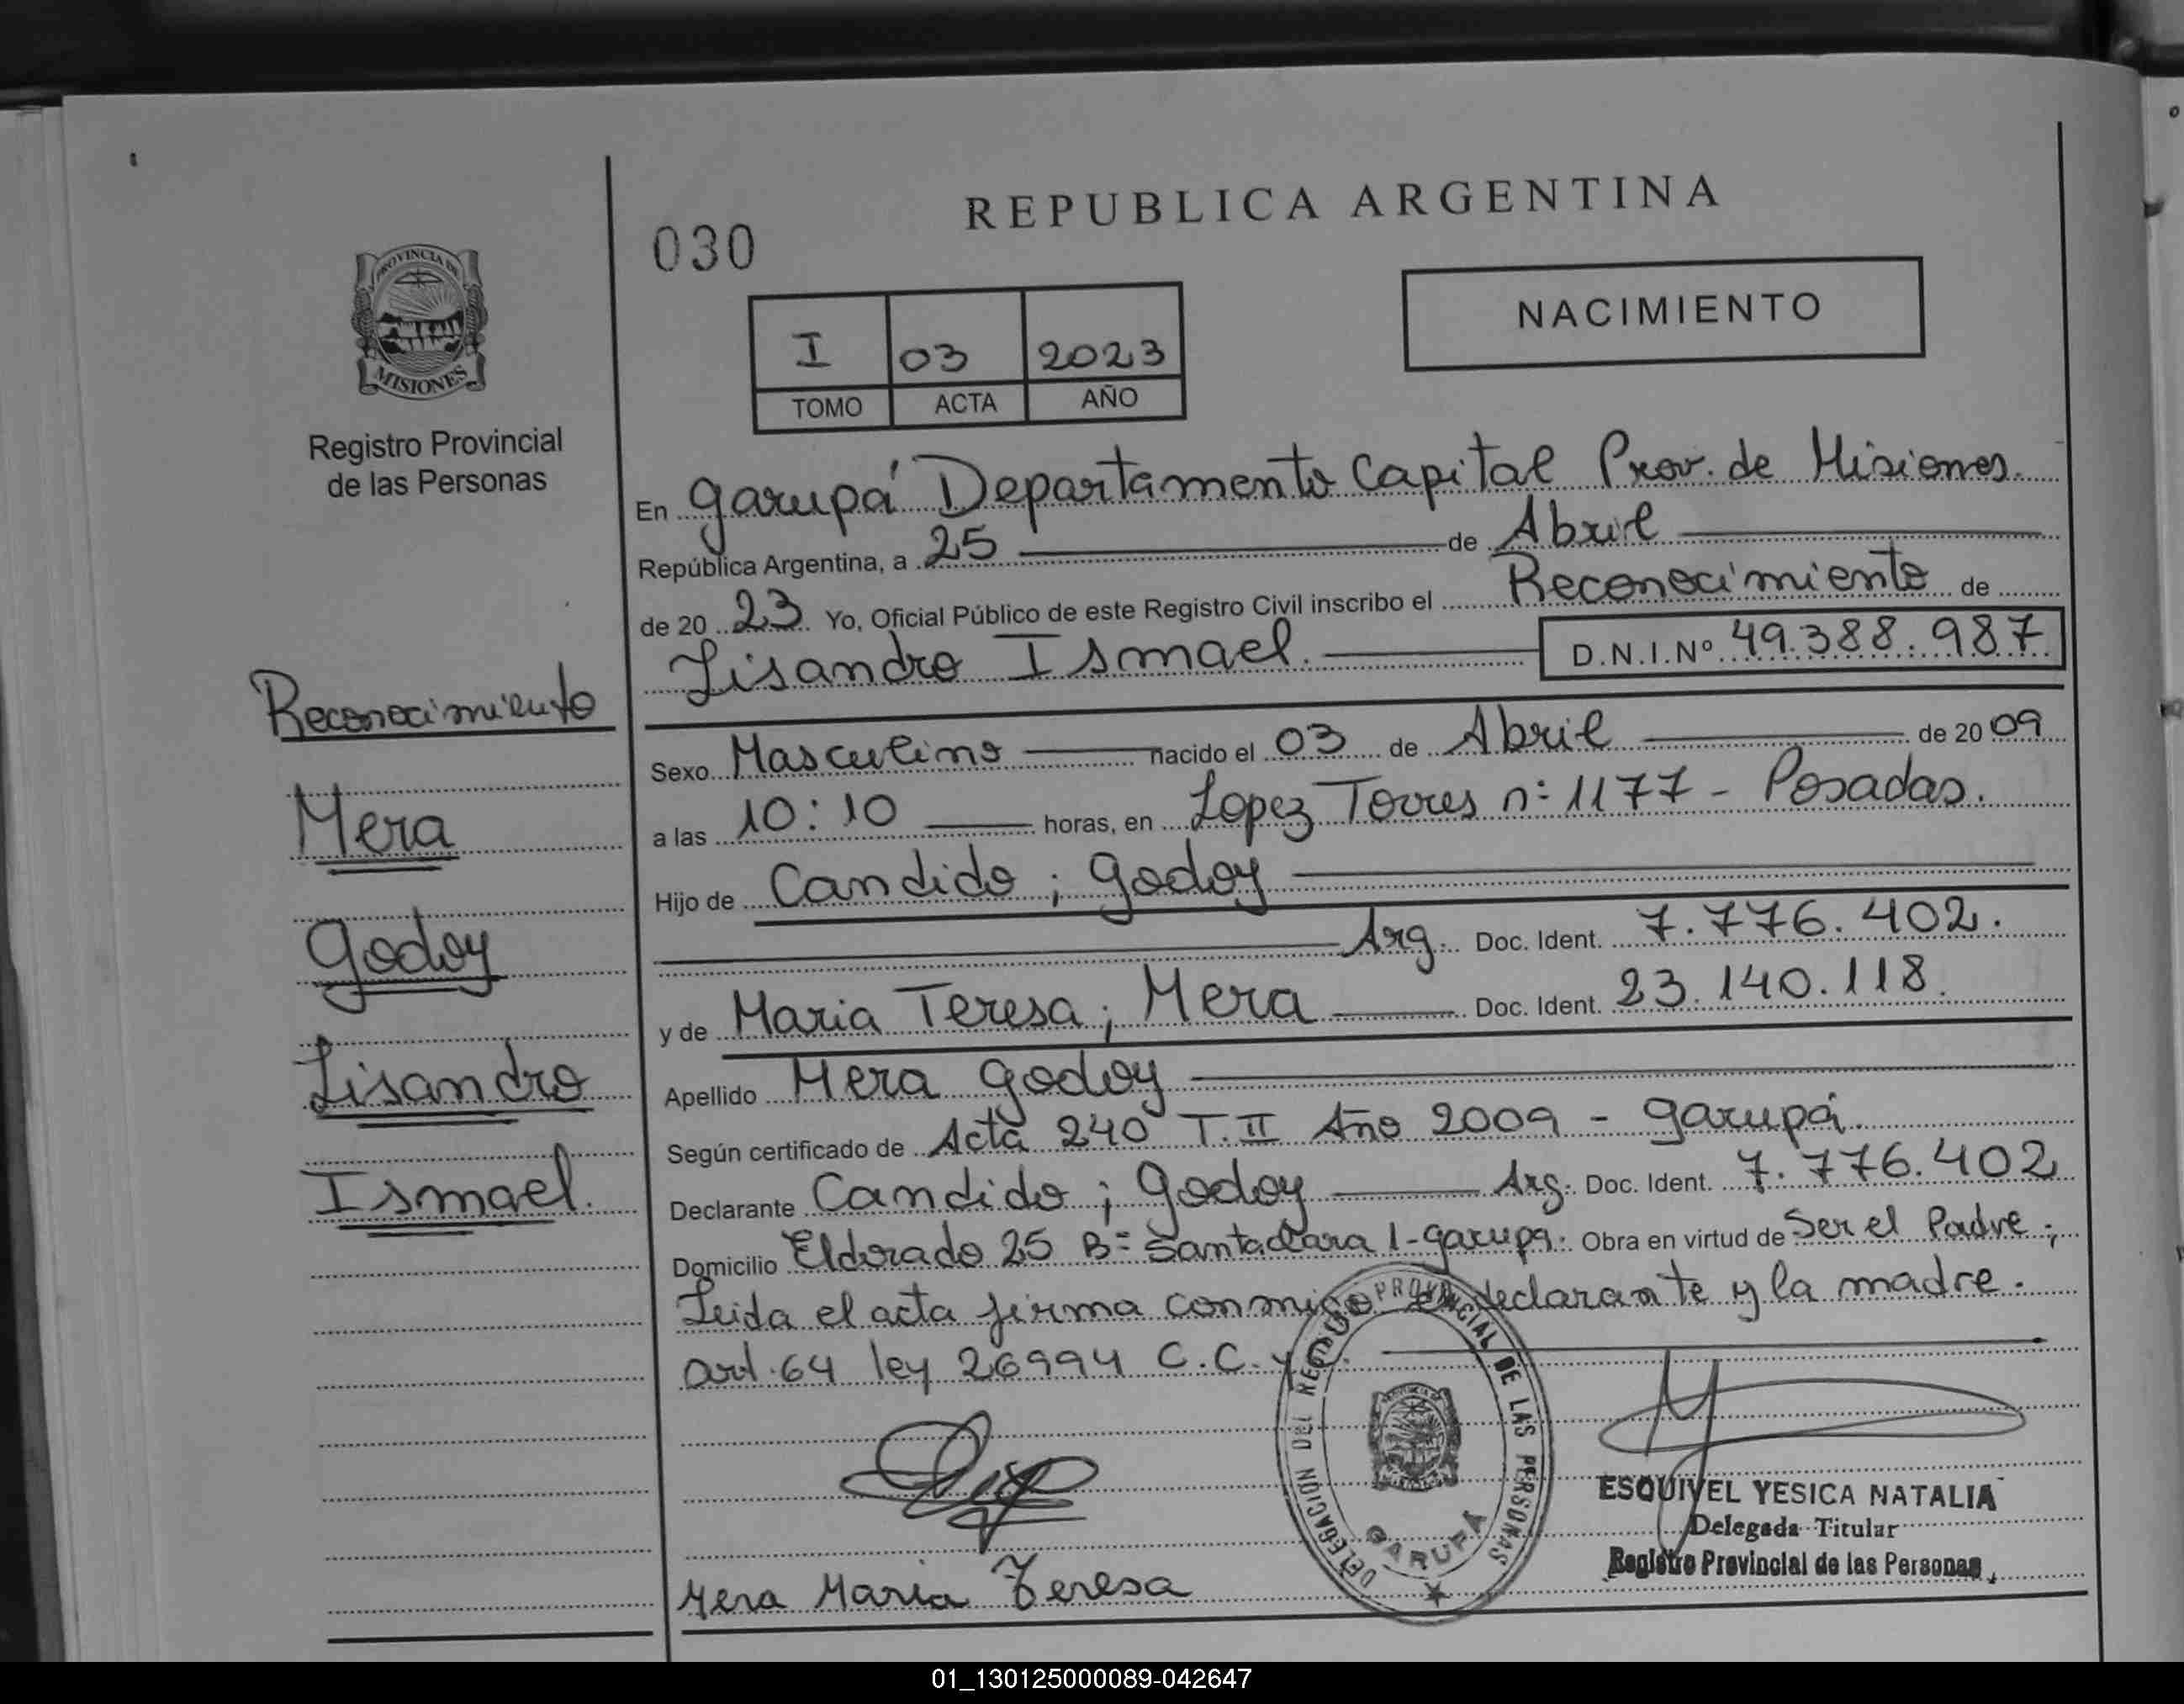 REPUBLICA ARGENTINA
030
NACIMIENTO
I 03 2023
TOMO ACTA AÑO
PROVINCIA DE
MISIONES
Registro Provincial
de las Personas
En Garupá Departamento Capital Prov. de Misiones.
República Argentina, a 25 de Abril
de 20 23 Yo, Oficial Público de este Registro Civil inscribo el Reconocimiento de
Lisandro Ismael. D.N.I.Nº 49.388.987
Reconocimiento
Mera
Godoy
Lisandro
Ismael.
Sexo Masculino nacido el 03 de Abril de 20 09
a las 10:10 horas, en Lopez Torres nº 1177 - Posadas.
Hijo de Candido ; Godoy
Arg. Doc. Ident. 7.776.402.
y de Maria Teresa ; Mera Doc. Ident. 23.140.118.
Apellido Mera Godoy
Según certificado de Acta 240 T. II Año 2009 - Garupá.
Declarante Candido ; Godoy Arg. Doc. Ident. 7.776.402
Domicilio Eldorado 25 Bº Santa Clara 1 - Garupá. Obra en virtud de Ser el Padre ;
Leida el acta firma conmigo el declarante y la madre.
art. 64 ley 26994 C.C. y C.
DELEGACIÓN DEL REGISTRO PROVINCIAL DE LAS PERSONAS
GARUPÁ
ESQUIVEL YESICA NATALIA
Delegada Titular
Registro Provincial de las Personas
Mera Maria Teresa
01_130125000089-042647